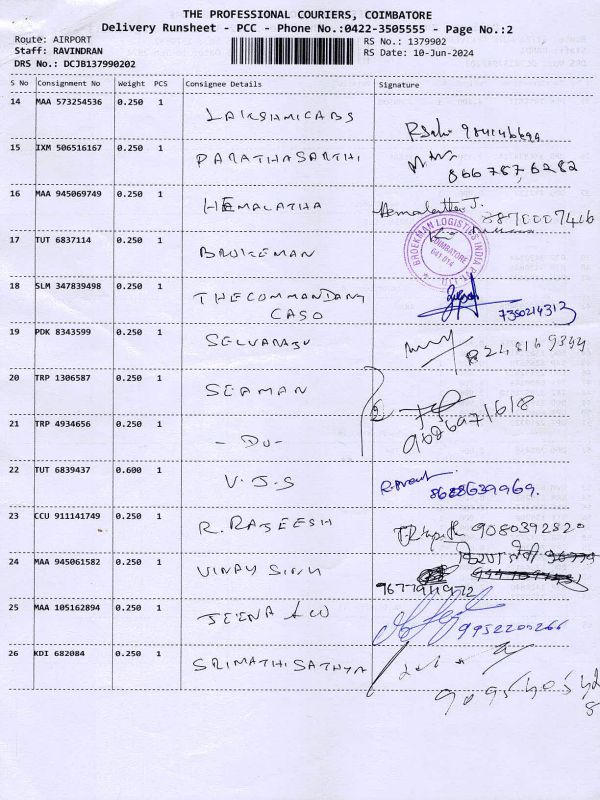 THE PROFESSIONAL COURIERS, COIMBATORE
Delivery Runsheet - PCC - Phone No.:0422-3505555 - Page No.:2
Route: AIRPORT
RS No.: 1379902
Staff: RAVINDRAN
RS Date: 10-Jun-2024
DRS No.: DCJB137990202
S No Consignment No Weight PCS Consignee Details Signature
14 MAA 573254536 0.250 1 LAKSHMICABS
15 IXM 506516167 0.250 1 PARATHASARTHI
866 787 6282
16 MAA 945069749 0.250 1 HEMALATHA Hemalatha J.
8870007416
17 TUT 6837114 0.250 1 BROKEMAN
BROEKMAN LOGISTICS INDIA PVT. LTD.
COIMBATORE
641 014
18 SLM 347839498 0.250 1 THECOMMANDANT
CASO
7350214313
19 PDK 8343599 0.250 1 SELVARAJU
8248169344
20 TRP 1306587 0.250 1 SEAMAN
21 TRP 4934656 0.250 1 - DO -
9686971618
22 TUT 6839437 0.600 1 V.J.S
8688639969.
23 CCU 911141749 0.250 1 R. RAJEESH
9080392820
24 MAA 945061582 0.250 1 VINAY SINGH
9677911972
25 MAA 105162894 0.250 1 JEENA & CO
9952200266
26 KDI 682084 0.250 1 SRIMATHISATHYA